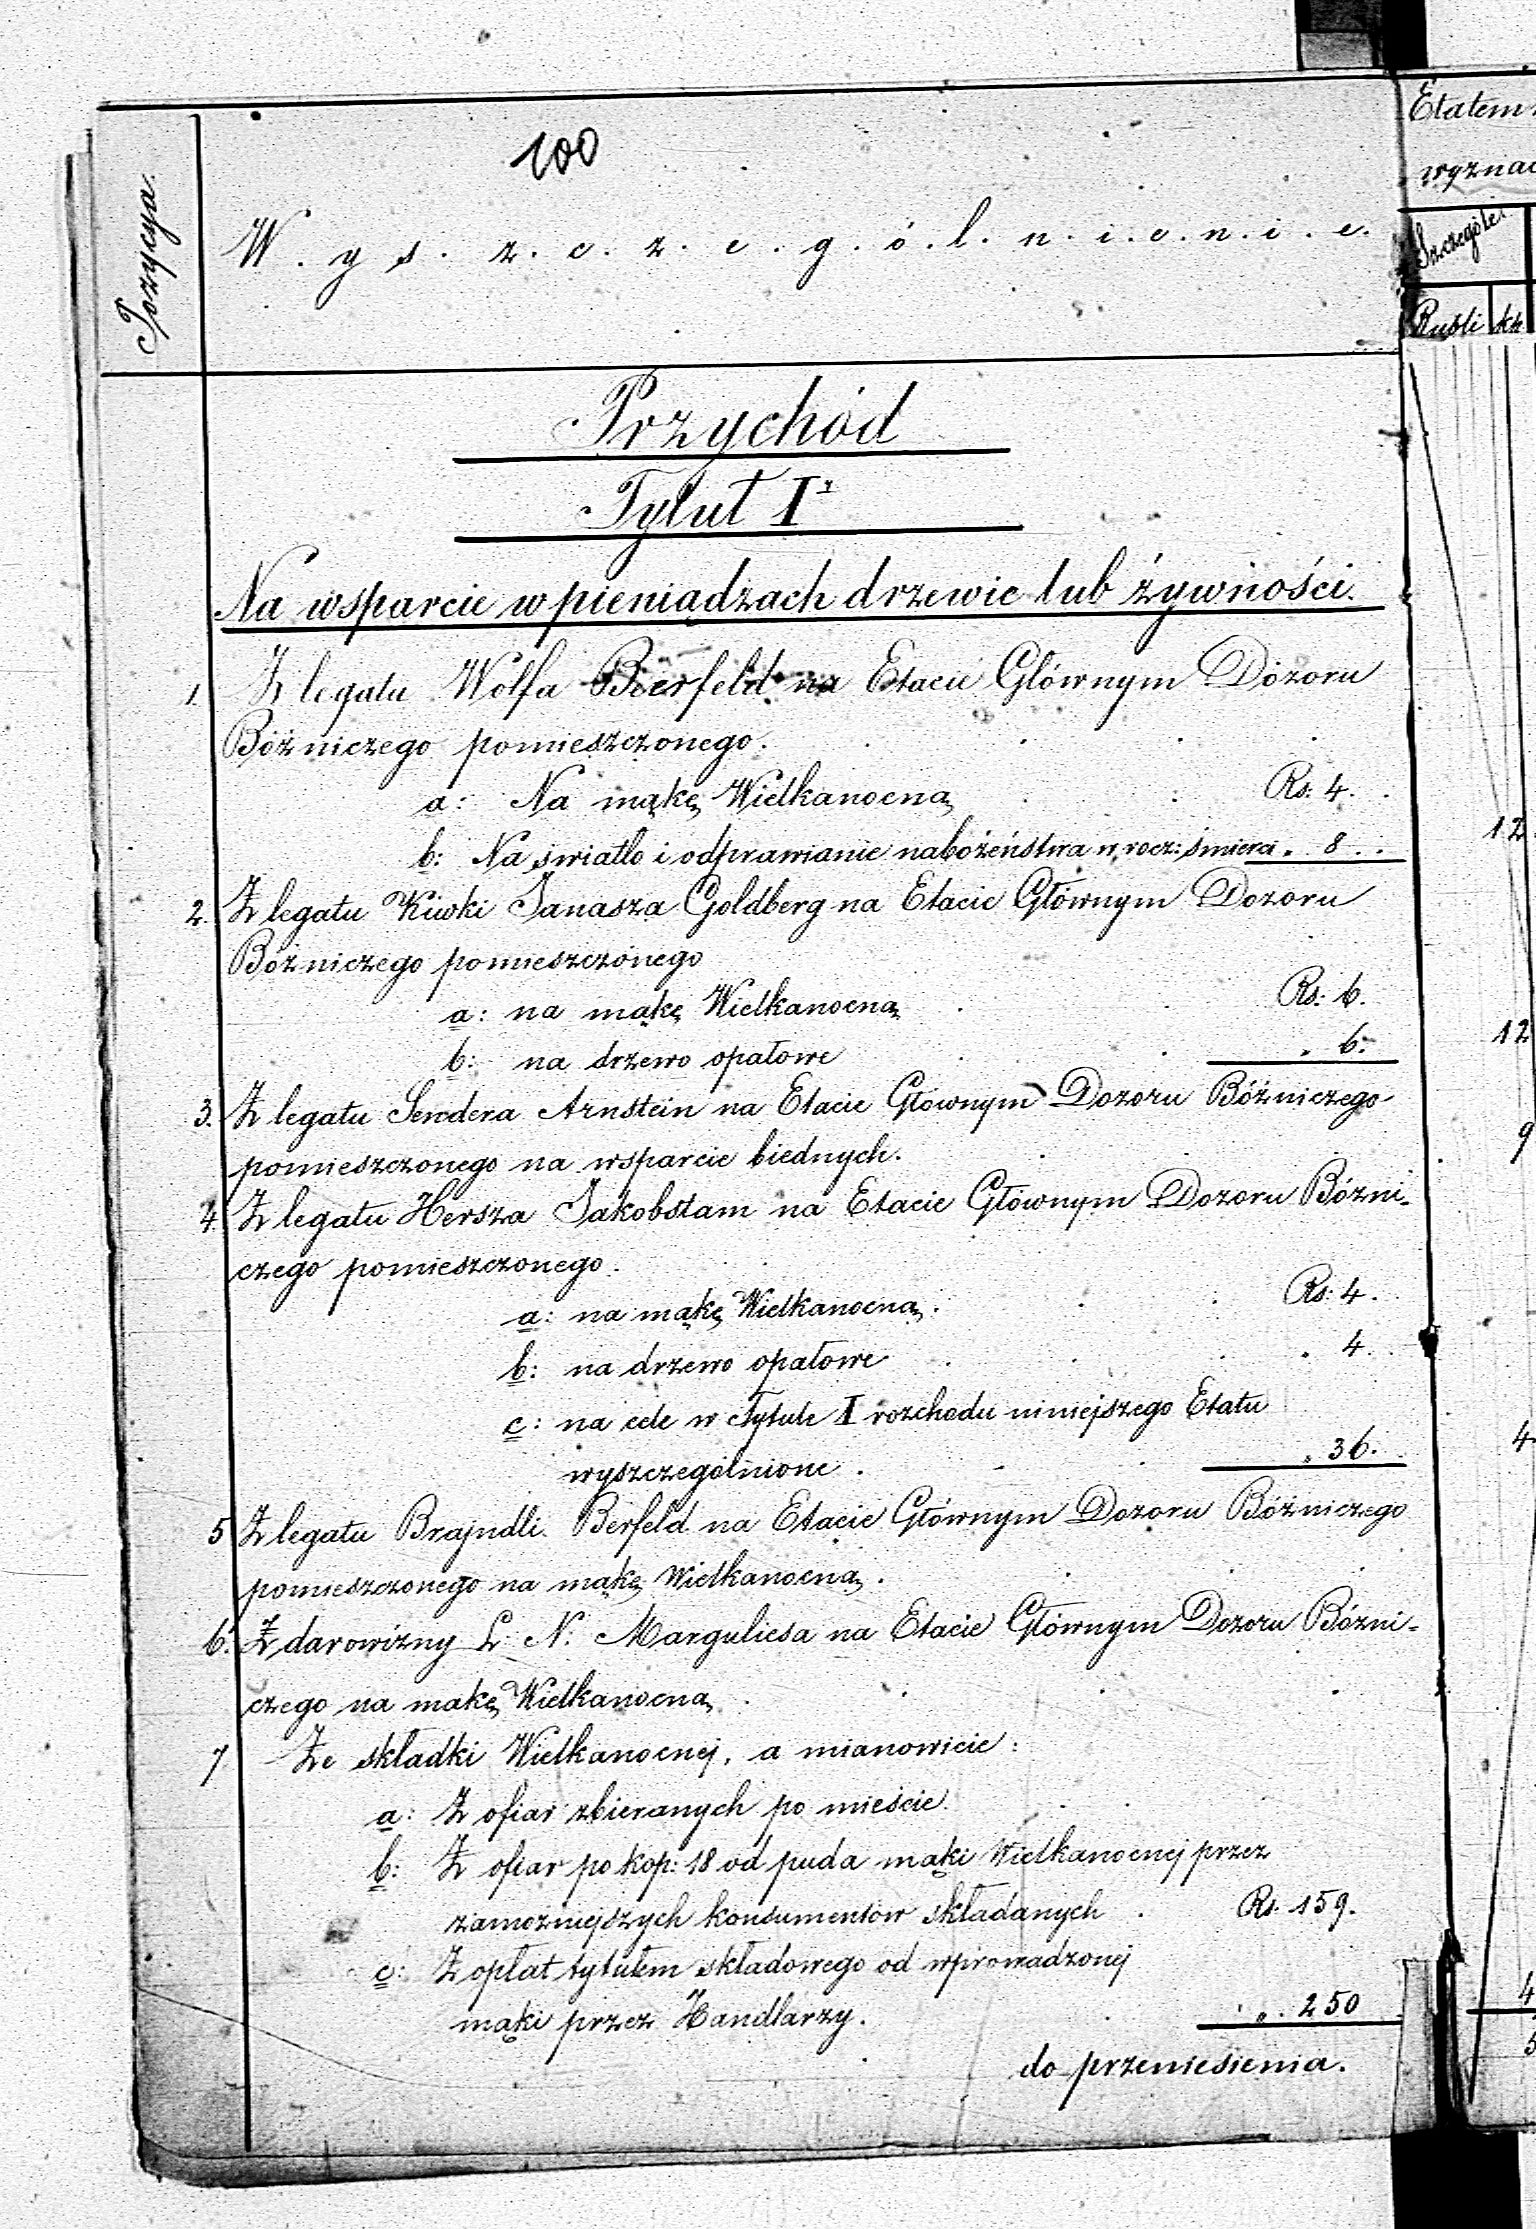 100
Pozycya.
W.y.s.z.c.z.e.g.ó.l.n.i.e.n.i.e.
Etatem
wyznac
Szczegółe
Rubli
Przychód
Tytuł I
Na wsparcie w pieniądzach drzewie lub żywności.
1. Z legatu Wolfa Bierfeld na Etacie Głównym Dozoru
Bóżniczego pomieszczonego.
a: Na mąkę Wielkanocną Rs: 4.
b: Na światło i odprawianie nabożeństwa w rocz: śmierci „ 8 12
2. Z legatu Kiwki Janasza Goldberg na Etacie Głównym Dozoru
Bóżniczego pomieszczonego
a: na mąkę Wielkanocną Rs: 6.
b: na drzewo opałowe „ 6. 12
3. Z legatu Sendera Arnstein na Etacie Głównym Dozoru Bóżniczego
pomieszczonego na wsparcie biednych. 9
4. Z legatu Hersza Jakobstam na Etacie Głównym Dozoru Bóżni-
czego pomieszczonego.
a: na mąkę Wielkanocną. Rs: 4.
b: na drzewo opałowe „ 4.
c: na cele w Tytule I rozchodu niniejszego Etatu
wyszczególnione. „ 36. 4
5 Z legatu Brajndli Berfeld na Etacie Głównym Dozoru Bóżniczego
pomieszczonego na mąkę Wielkanocną.
6. Z darowizny L. N. Marguliesa na Etacie Głównym Dozoru Bóżni-
czego na makę Wielkanocną
7 Ze składki Wielkanocnej, a mianowicie:
a: Z ofiar zbieranych po mieście.
b: Z ofiar po kop: 18 od puda mąki Wielkanocnej przez
zamożniejszych konsumentów składanych Rs. 159.
c: Z opłat tytułem składowego od wprowadzonej
mąki przez Handlarzy. „ 250 4
do przeniesienia. 5